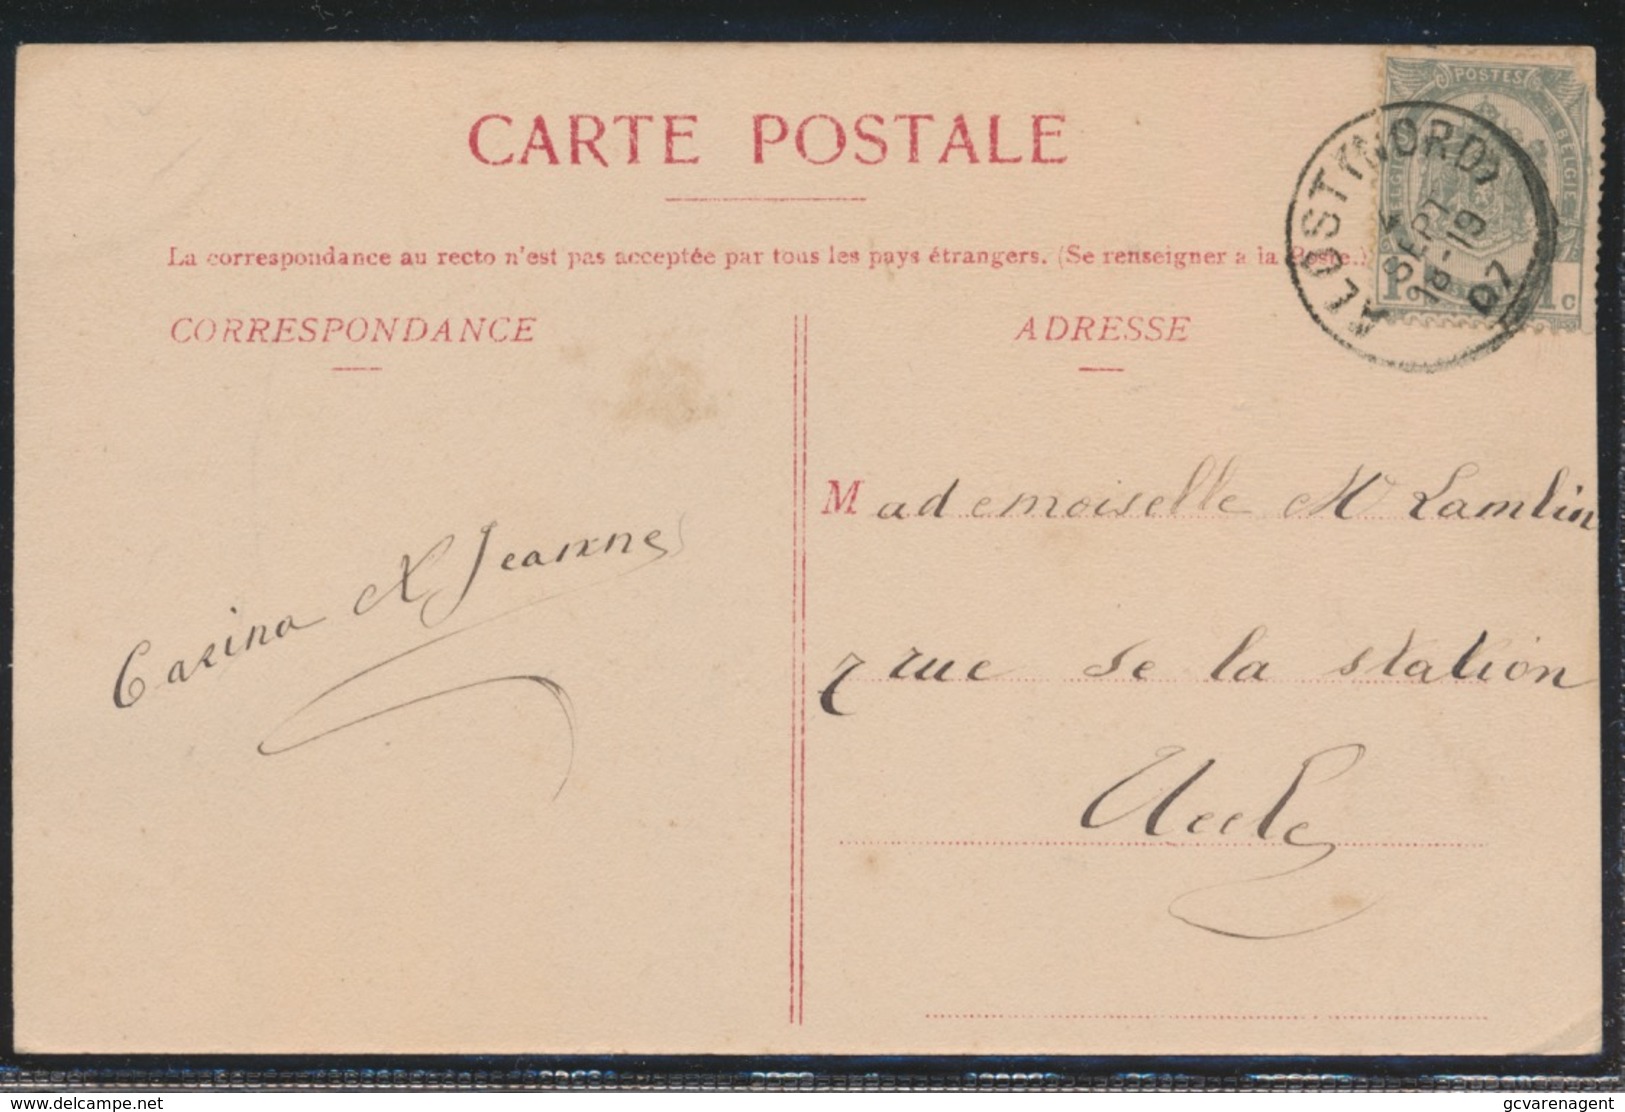 CARTE POSTALE
La correspondance au recto n'est pas acceptée par tous les pays étrangers. (Se renseigner a la Poste.)
CORRESPONDANCE
ADRESSE
POSTES
BELGIE
ALOST (NORD)
SEPT
18-19
07
1 c
Mademoiselle M Lamlin
7 rue de la station
Uccle
Carina & Jeanne
delcampe.net
gcvarenagent